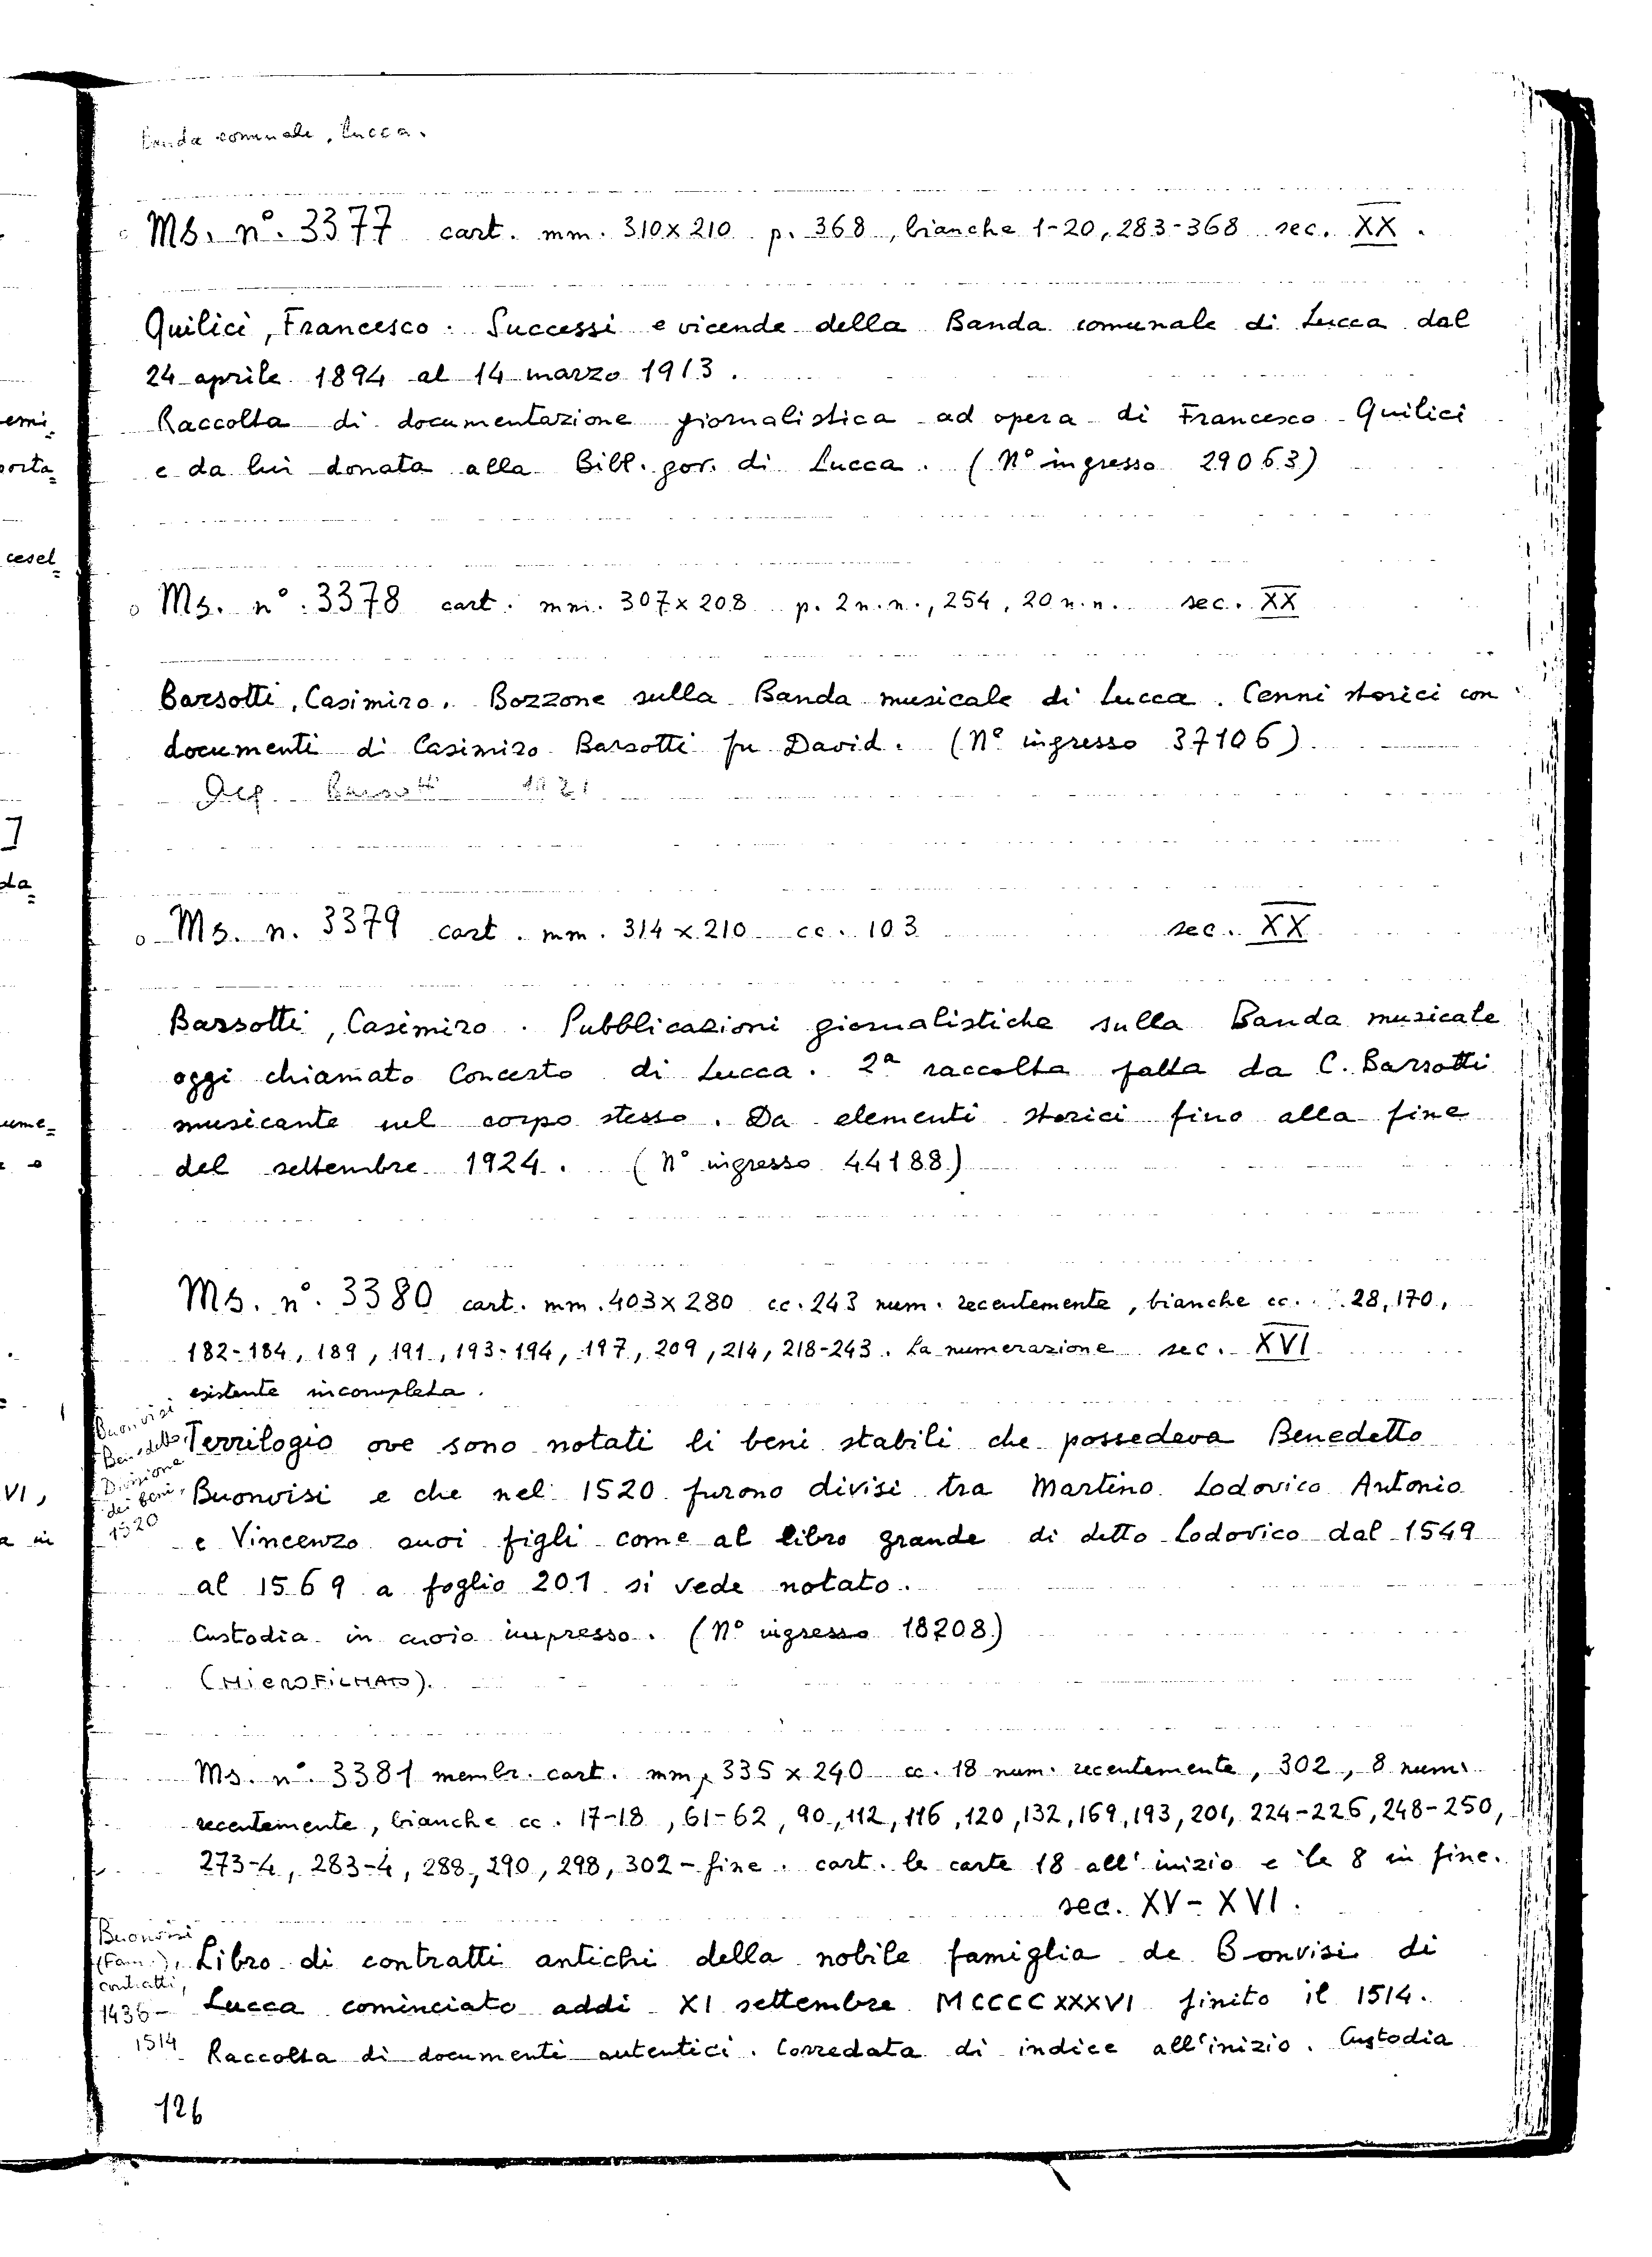 Banda comunale, Lucca.
Ms. n°. 3377 cart. mm. 310x210 p. 368, bianche 1-20, 283-368 sec. XX.
Quilici, Francesco. Successi e vicende della Banda comunale di Lucca dal
24 aprile 1894 al 14 marzo 1913.
Raccolta di documentazione giornalistica ad opera di Francesco Quilici
e da lui donata alla Bibl. gov. di Lucca. (N° ingresso 29063)
Ms. n°. 3378 cart. mm. 307x208 p. 2 n.n., 254, 20 n.n. sec. XX
Barsotti, Casimiro. Bozzone sulla Banda musicale di Lucca. Cenni storici con
documenti di Casimiro Barsotti fu David. (N° ingresso 37106)
Barsotti
Ms. n. 3379 cart. mm. 314x210 cc. 103 sec. XX
Barsotti, Casimiro. Pubblicazioni giornalistiche sulla Banda musicale
oggi chiamato Concerto di Lucca. 2ª raccolta fatta da C. Barsotti
musicante nel corpo stesso. Da elementi storici fino alla fine
del settembre 1924. (N° ingresso 44188)
Ms. n°. 3380 cart. mm. 403x280 cc. 243 num. recentemente, bianche cc. 28, 170,
182-184, 189, 191, 193-194, 197, 209, 214, 218-243. La numerazione sec. XVI
esistente incompleta.
Buonvisi
Benedetto,
Divisione
dei beni,
1520
Terrilogio ove sono notati li beni stabili che possedeva Benedetto
Buonvisi e che nel 1520 furono divisi tra Martino Lodovico Antonio
e Vincenzo suoi figli come al libro grande di detto Lodovico dal 1549
al 1569 a foglio 201 si vede notato.
Custodia in cuoio impresso. (N° ingresso 18208)
(MICROFILMATO).
Ms. n°. 3381 membr. cart. mm. 335x240 cc. 18 num. recentemente, 302, 8 num.
recentemente, bianche cc. 17-18, 61-62, 90, 112, 116, 120, 132, 169, 193, 201, 224-226, 248-250,
273-4, 283-4, 288, 290, 298, 302-fine. cart. le carte 18 all'inizio e le 8 in fine.
sec. XV-XVI.
Buonvisi
(Fam.),
contratti,
1436-
1514
Libro di contratti antichi della nobile famiglia de Bonvisi di
Lucca cominciato addi XI settembre MCCCCXXXVI finito il 1514.
Raccolta di documenti autentici. Corredata di indice all'inizio. Custodia
126